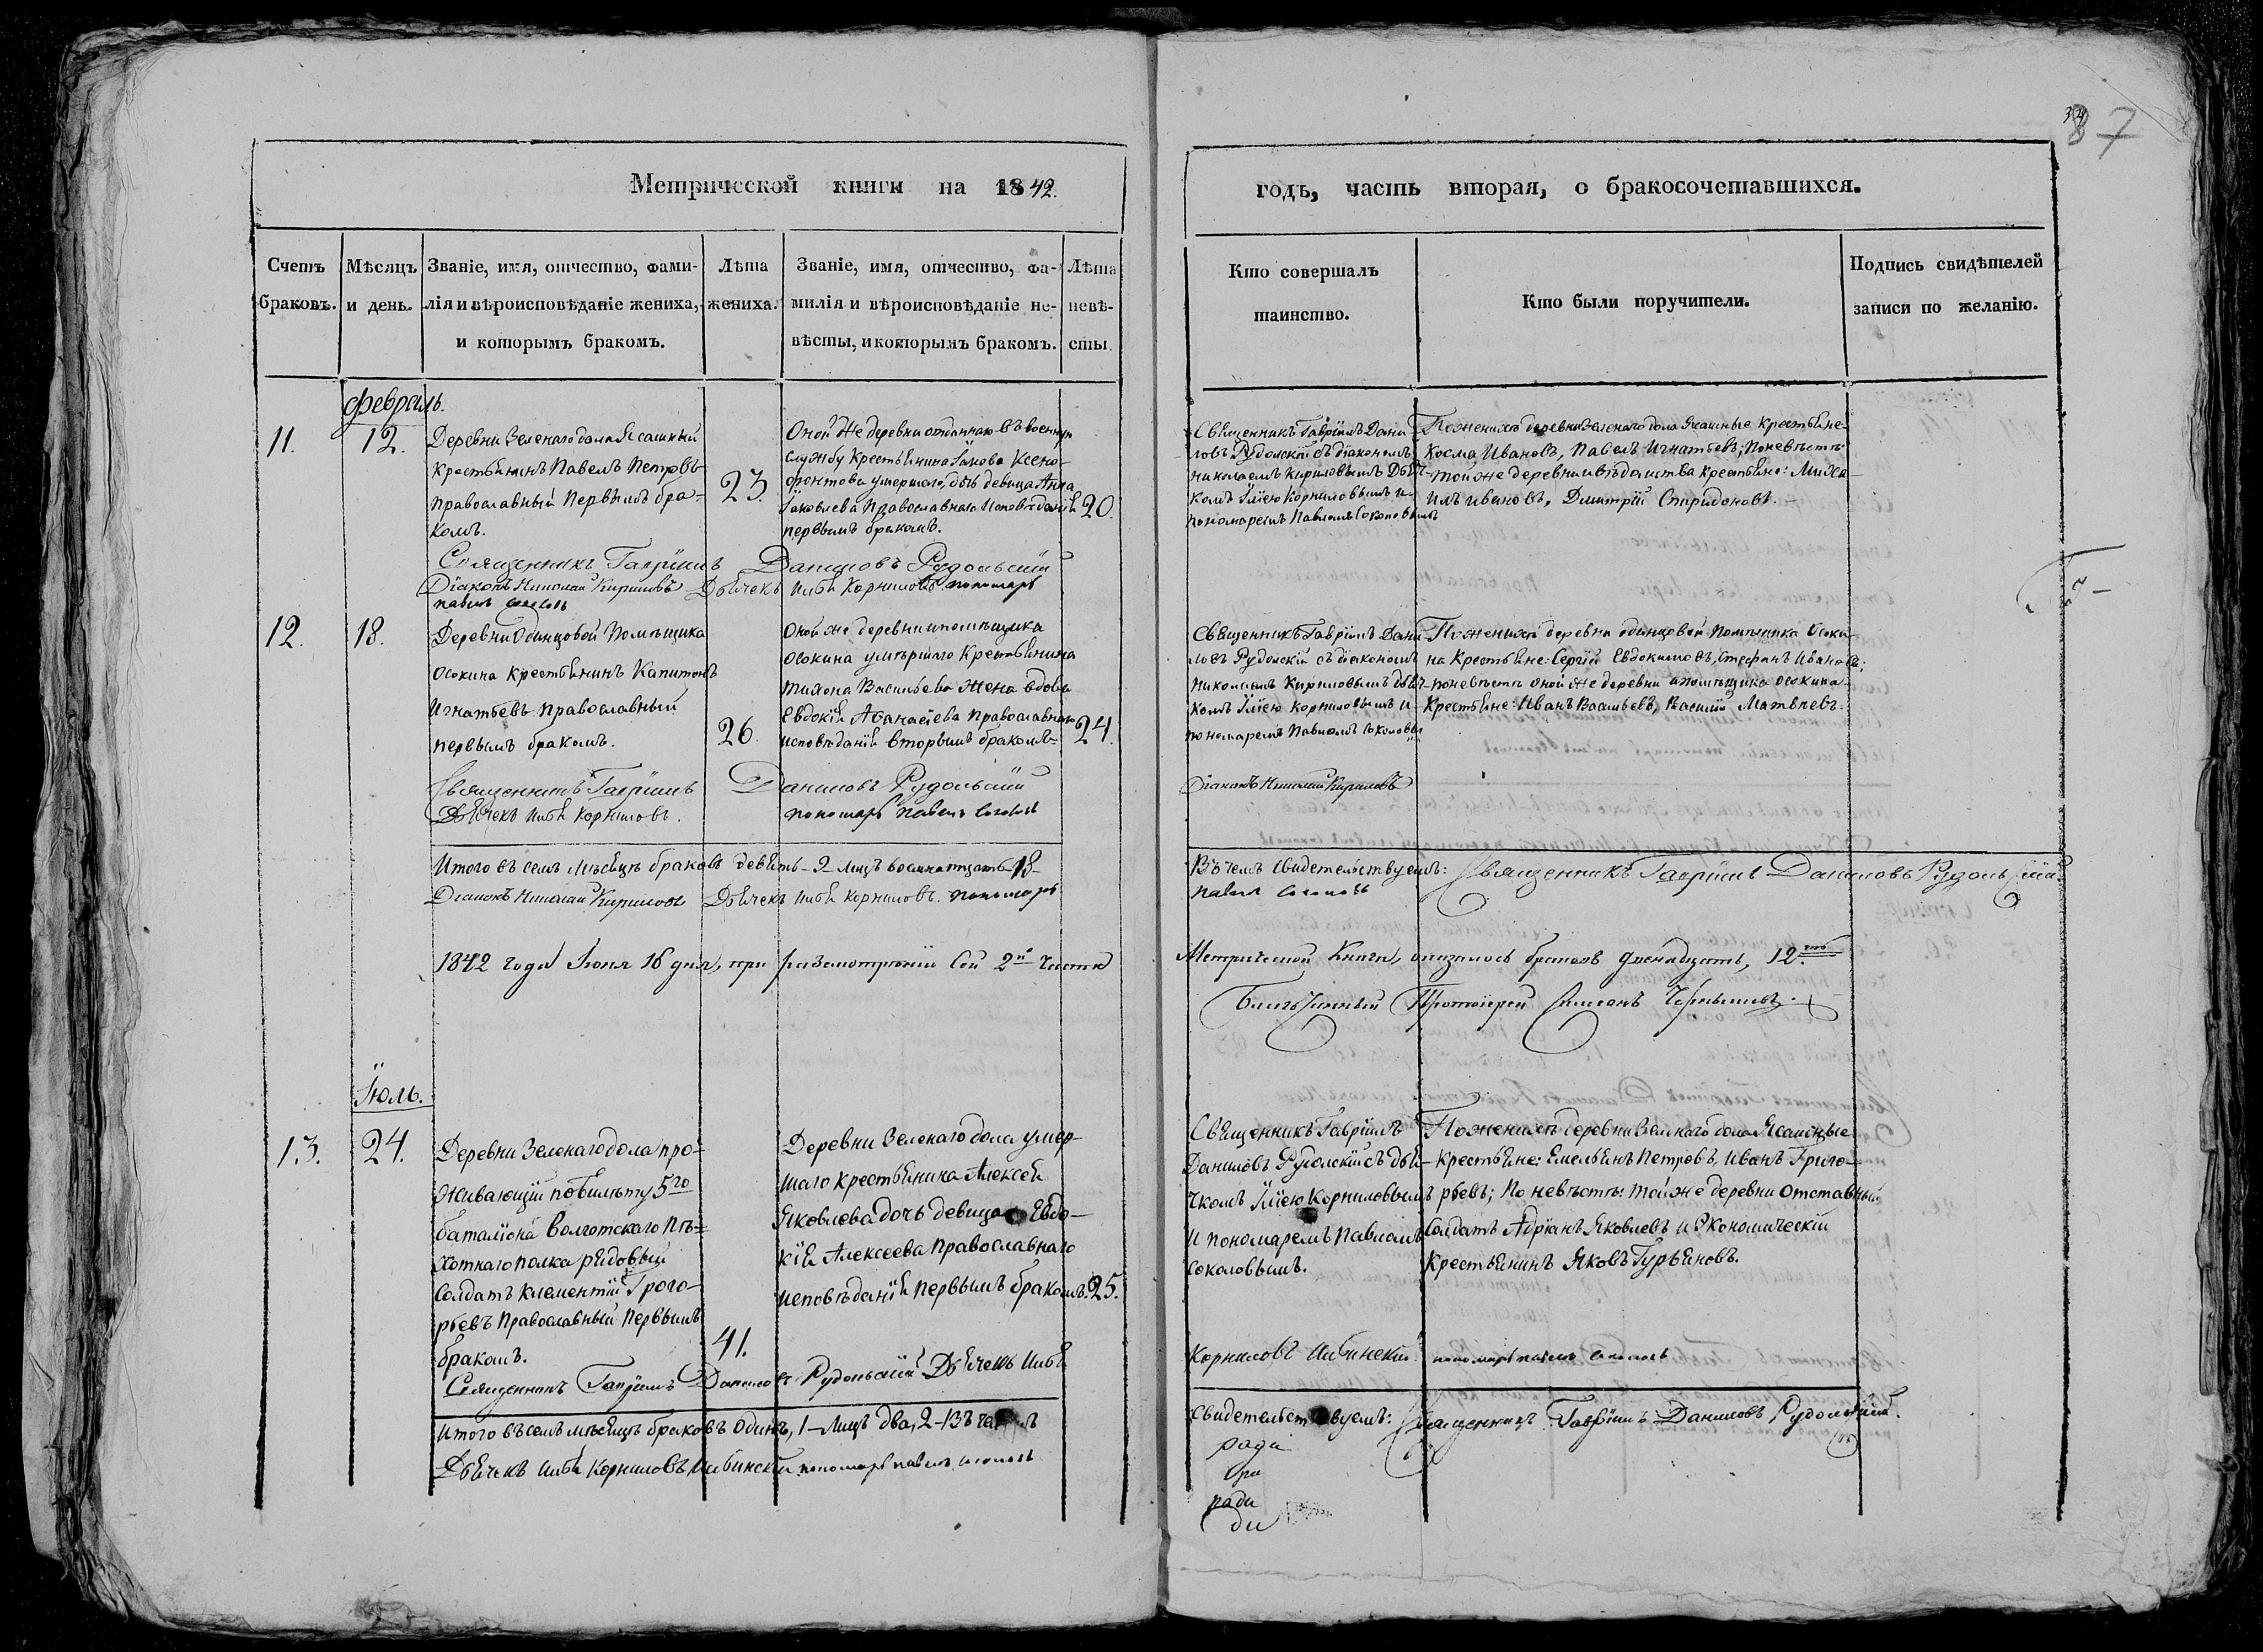 87
Метрической книги на 1842.
годъ, часть вторая, о бракосочетавшихся.
Счетъ браковъ.
Мѣсяцъ и день.
Званіе, имя, отчество, фами-
лія и вѣроисповѣданіе жениха,
и которымъ бракомъ.
Лѣта жениха.
Званіе, имя, отчество, фа-
милія и вѣроисповѣданіе не-
вѣсты, и которымъ бракомъ.
Лѣта невѣ-
сты
Кто совершалъ
таинство.
Кто были поручители.
Подпись свидѣтелей
записи по желанію.
Февраль.
11.
12.
Деревни Зеленаго дола Ясашный
крестьянинъ Павелъ Петровъ
православный первымъ бра-
комъ.
23.
Оной же деревни отданнаго въ военную
службу крестьянина Іакова Ксено-
фонтова умершаго, дочь девица Анна
Іаковлева Православнаго Исповѣданія
первымъ бракомъ.
20.
Священникъ Гавріилъ Дани-
ловъ Рудольскій съ діакономъ
Николаемъ Кириловымъ Дьяч-
комъ Иліею Корниловымъ и
пономаремъ Павломъ Соколовымъ
По женихѣ деревни Зеленаго дола Ясашные крестьяне
Косма Ивановъ, Павелъ Игнатьевъ; По невѣстѣ
той же деревни и вѣдомства крестьяне: Миха-
илъ Ивановъ, Димитрій Спиридоновъ.
Священникъ Гавріилъ Даниловъ Рудольскій
Діаконъ Николай Кириловъ Дьячекъ Илья Корниловъ пономарь
павелъ соколовъ
12.
18.
Деревни Одинцовой Помѣщика
Осокина крестьянинъ Капитонъ
Игнатьевъ православный
первымъ бракомъ.
26.
Оной же деревни и помѣщика
Осокина умершаго крестьянина
Тихона Васильева жена вдова
Евдокія Аѳанасіева православнаго
исповѣданія вторымъ бракомъ
24.
Священникъ Гавріилъ Дани-
ловъ Рудольскій съ діакономъ
Николаемъ Кириловымъ дьяч-
комъ Иліею Корниловымъ и
пономаремъ Павломъ Соколовым
По женихѣ деревни Одинцовой помѣщика Осоки-
на крестьяне: Сергій Евдокимовъ, Стефанъ Ивановъ;
по невѣстѣ оной же деревни и помѣщика Осокина
Крестьяне: Иванъ Васильевъ, Василій Матвѣевъ.
Священникъ Гавріилъ Даниловъ Рудольскій
Дьячекъ Илья Корниловъ. пономарь павелъ соколовъ
Діаконъ Николай Кириловъ
Итого въ семъ мѣсяцѣ браковъ девять - 9 - лицъ восемнатцать - 18 -
Діаконъ Николай Кириловъ Дьячекъ Илья Корниловъ. пономарь
Въ чемъ свидетельствуемъ: Священникъ Гавріилъ Даниловъ Рудольскій.
павелъ соколовъ
1842 года Іюня 16 дня, при разсмотрѣніи сей 2й части
Метрической Книги, оказалось браковъ двенадцать, 12.
Благочинный Протоіерей Симеонъ Чернышевъ.
Іюль.
13.
24.
Деревни Зеленаго дола про-
живающій по билѣту 5го
баталіона Волготскаго Пѣ-
хотнаго полка рядовый
солдатъ Климентій Григо-
рьевъ Православный Первымъ
бракомъ.
41.
Деревни Зеленаго дола умер-
шаго крестьянина Алексѣя
Яковлева дочь девица Евдо-
кія Алексѣева Православнаго
исповѣданія первымъ бракомъ.
25.
Священникъ Гавріилъ
Даниловъ Рудольскій съ дья-
чкомъ Иліею Корниловымъ
и пономаремъ Павломъ
Соколовымъ.
По женихѣ деревни Зеленаго дола Ясашные
крестьяне: Емельянъ Петровъ, Иванъ Григо-
рьевъ; По невѣстѣ: той же деревни отставный
солдатъ Адріанъ Яковлевъ и Экономическій
крестьянинъ Яковъ Гурьяновъ.
Священникъ Гавріилъ Даниловъ Рудольскій Дьячекъ Илья
Корниловъ пономарь павелъ соколовъ
Итого въ семъ мѣсяцѣ браковъ Одинъ, 1 - Лицъ два, 2 - Въ чемъ
свидетельствуемъ: Священникъ Гавріилъ Даниловъ Рудольскій.
Дьячекъ Илья Корниловъ пономарь павелъ соколовъ
ради
ри
ради
ди